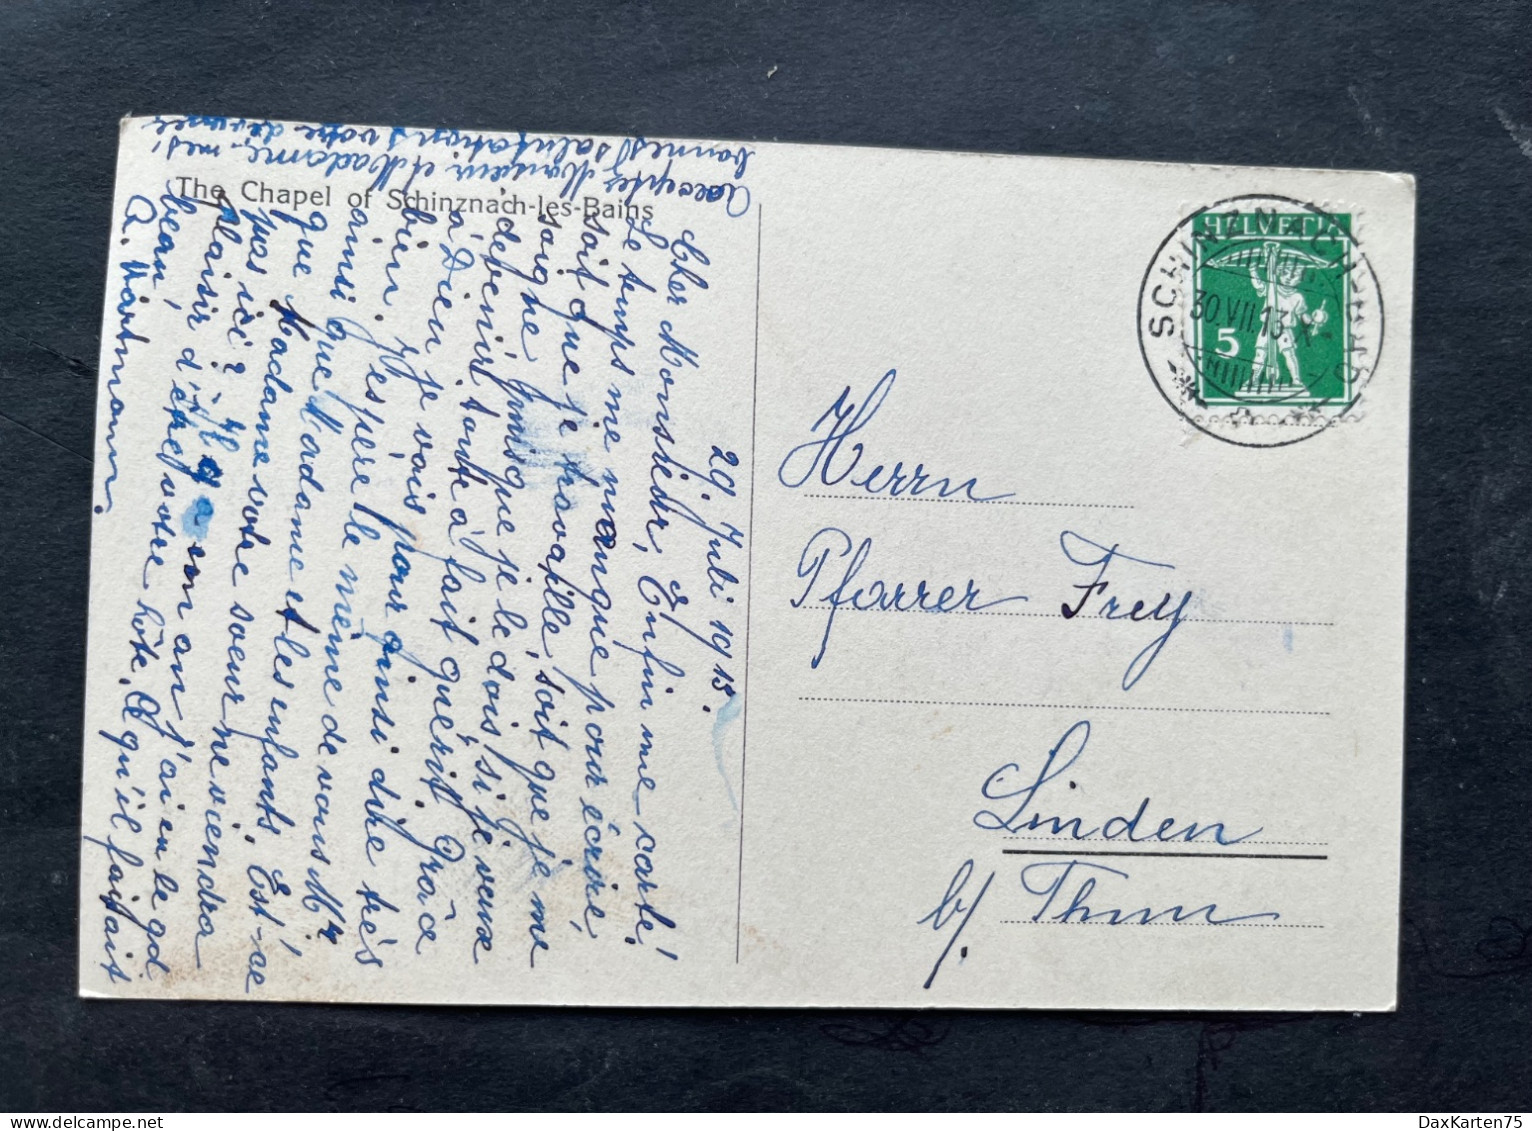 The Chapel of Schinznach-les-Bains
29. Juli 1913.
Cher Monsieur, Enfin une carte!
Le temps me manque pour écrire,
soit que je travaille, soit que je me
soigne puisque je le dois, si je veux
devenir toute à fait guérit. Grâce
à Dieu je vais pour ainsi dire très
bien. J'espère le même de vous Mr
ainsi que Madame et les enfants. Est-ce
que Madame votre soeur ne viendra
pas ici? Il y a un an j'ai eu le gd
plaisir d'être votre hôte. Qu'il faisait
beau,
Acceptez Monsieur et Madame, mes
bonnes salutations votre dévouée
A. Hartmann.
HELVETIA
5
SCHINZNACH-BAD
30.VII.13.
Herrn
Pfarrer Frey
Linden
b/ Thun
DaxKarten75